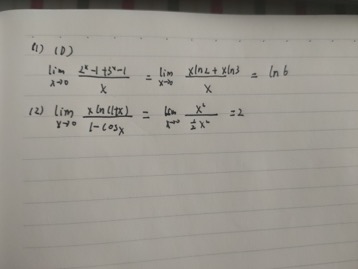 (1) (D)
lim x→0 (2^x-1+3^x-1)/x = lim x→0 (xln2+xln3)/x = ln6
(2) lim x→0 (xln(1+x))/(1-cosx) = lim x→0 x^2/(1/2 x^2) = 2